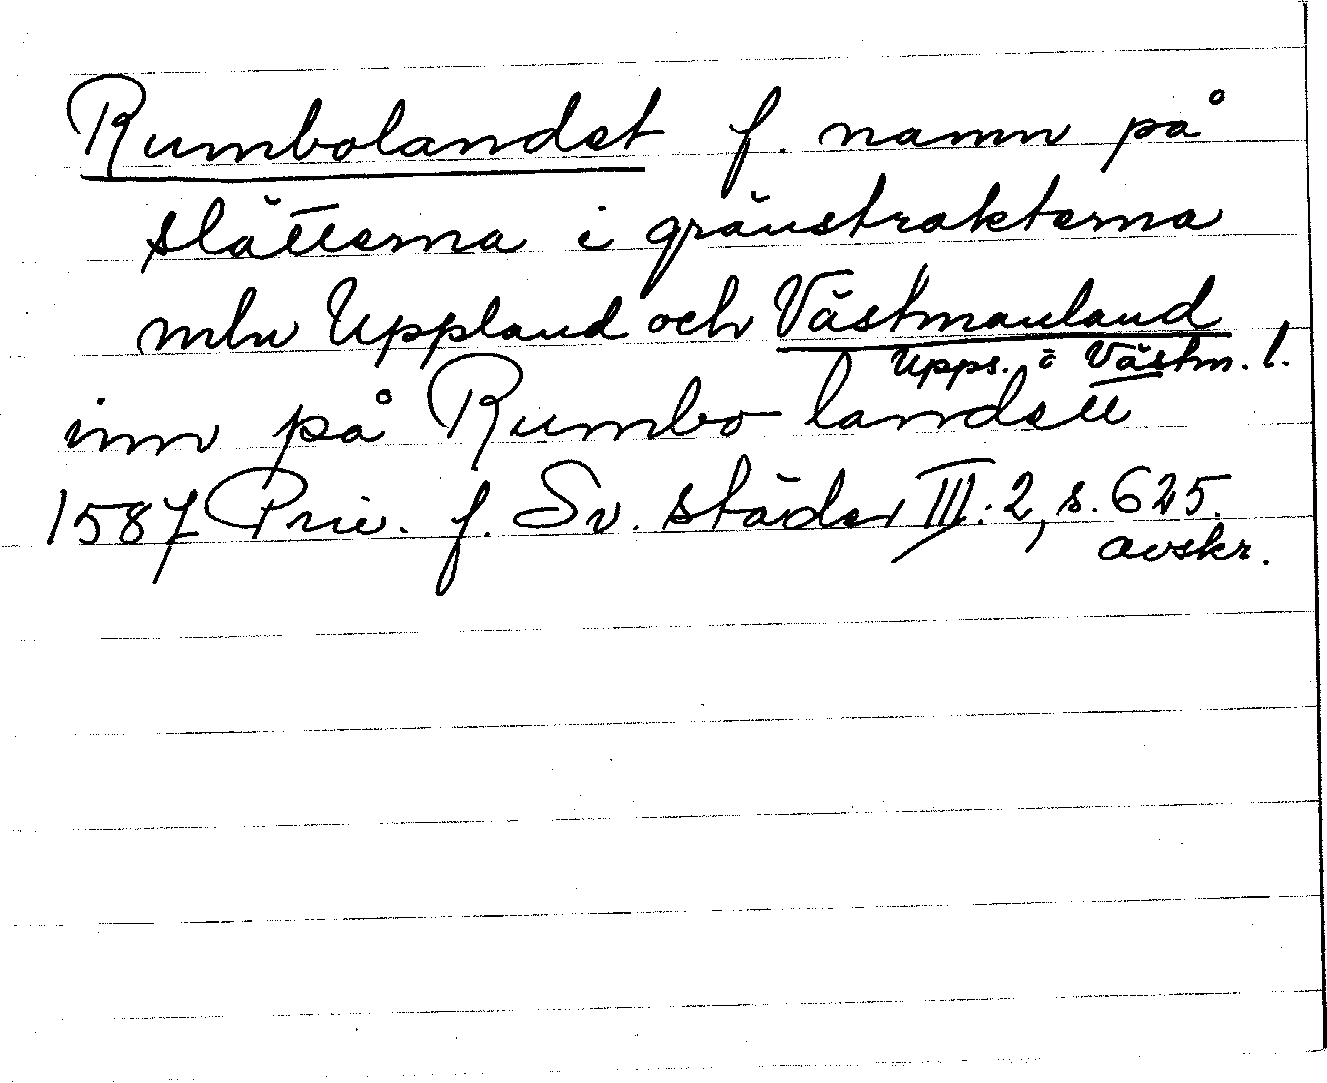 Rumbolandet f. namn på
slätterna i gränstrakterna
mln Uppland och Västmanland
Upps. o Västm. l.
inn på Rumbo landett
1587 Priv. f. Sv. städer III:2, s. 625.
avskr.